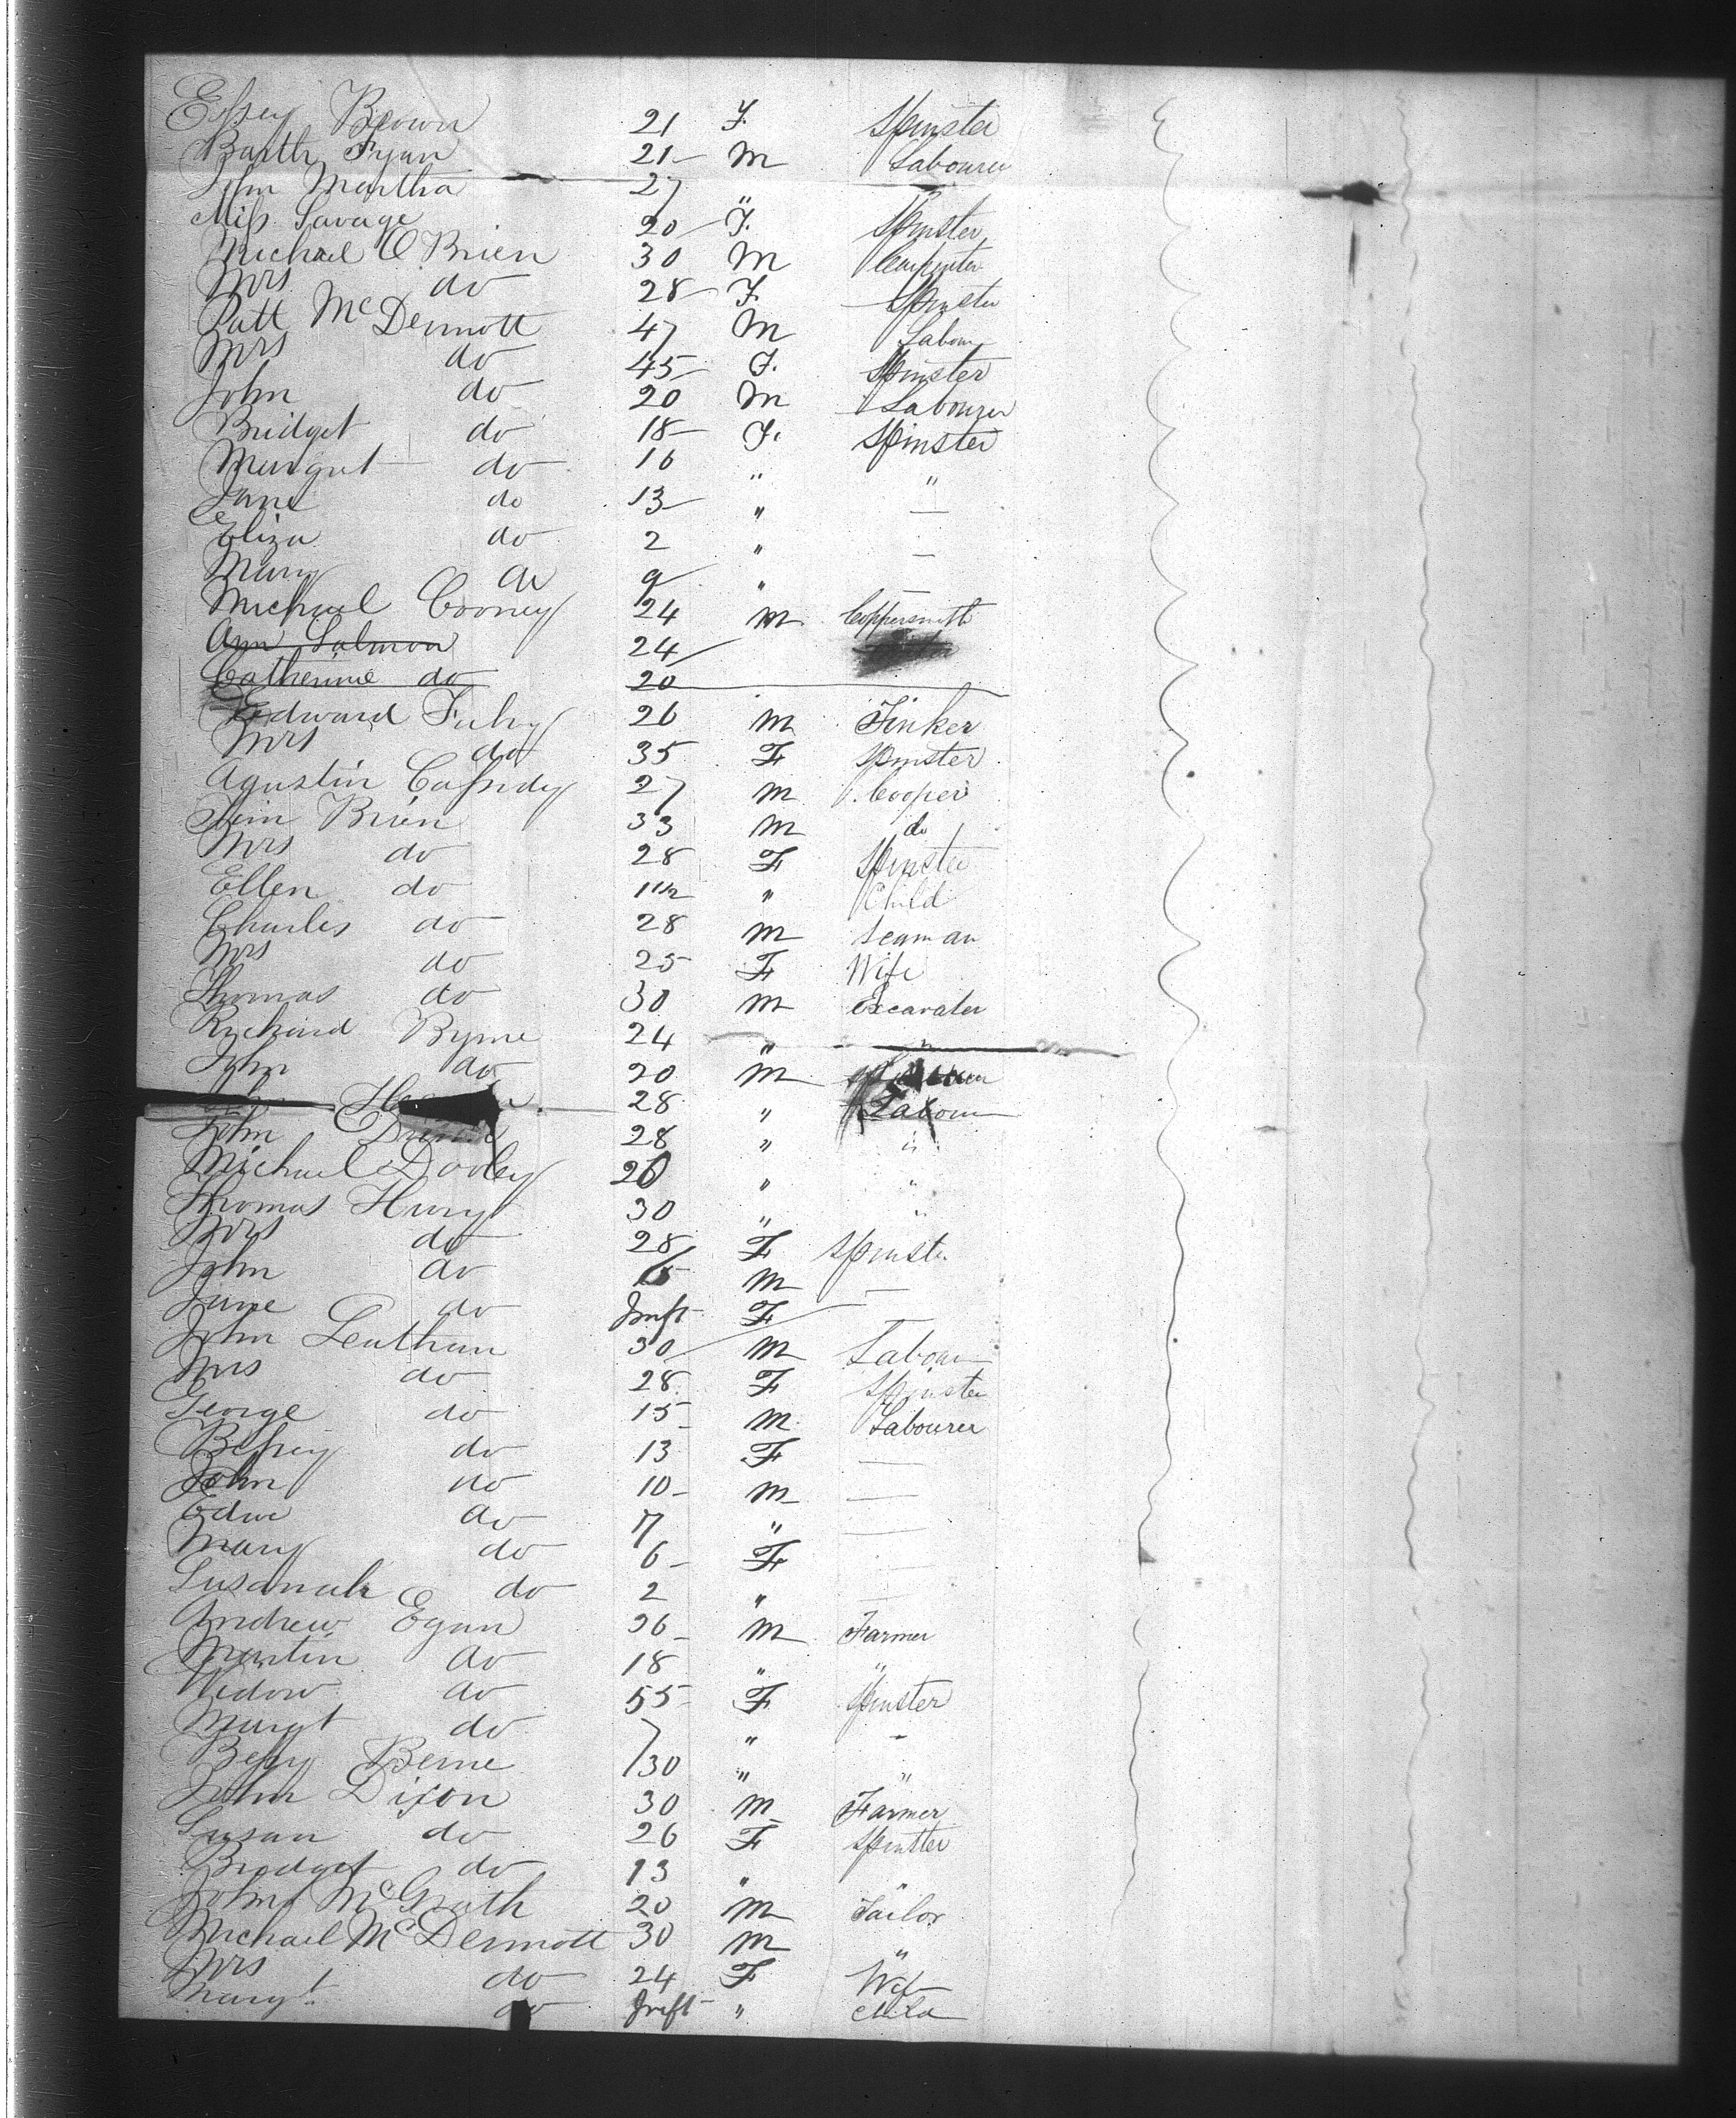 Essey Brown 21 F. Spinster
Barth Fynn 21 M Labourer
John Martha 27 "
Miss Savage 20 F. Spinster
Michael O'Brien 30 M Carpenter
Mrs do 28 F. Spinster
Patt McDermott 47 M Labour
Mrs do 45 F. Spinster
John do 20 M Labourer
Bridget do 18 F. Spinster
Margret do 16 " "
Jane do 13 " —
Eliza do 2 " —
Mary do 9 " —
Michael Cooney 24 M Coppersmith
Ann Salmon 24
Catherine do 20
Edward Fahy 26 M Tinker
Mrs do 35 F Spinster
Agustin Cassidy 27 M Cooper
Jim Brien 33 M do
Mrs do 28 F Spinster
Ellen do 11m " Child
Charles do 28 M Seaman
Mrs do 25 F Wife
Thomas do 30 M Excavater
Richard Byrne 24 " "
John do 20 M
28 " Labour
John 28 " "
Michael Dooley 20 " "
Thomas Hury 30 " "
Mrs do 28 F Spinster
John do M —
Jane do Inft F
John Leathum 30 M Labour
Mrs do 28 F Spinster
George do 15 M Labourer
Bessey do 13 F —
John do 10 M —
Edwe do 7 " —
Mary do 6 F
Susannah do 2 "
Andrew Egan 26 M Farmer
Martin do 18 " "
Widow do 55 F Spinster
Margt do 7 " -
Bessy Berne 30 " "
John Dixon 30 M Farmer
Susan do 26 F Spinster
Bridget do 13 " "
John McGrath 20 M Tailor
Michael McDermott 30 M "
Mrs do 24 F Wife
Margt do Inft " Child